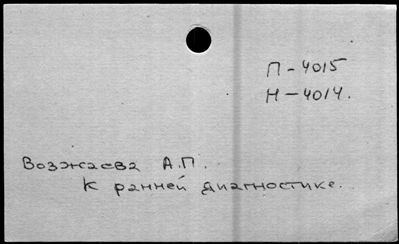 П-4015
Н-4014.
Возжаева А.П.
К ранней диагностике.